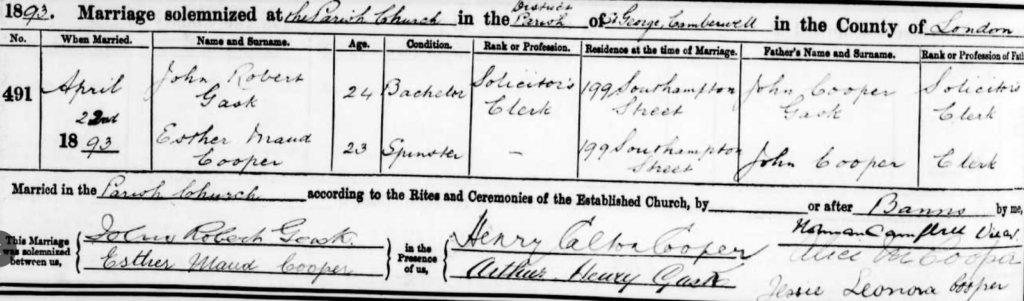 1893. Marriage solemnized at the Parish Church in the District Parish of St George, Camberwell in the County of London
No. When Married. Name and Surname. Age. Condition. Rank or Profession. Residence at the time of Marriage. Father's Name and Surname. Rank or Profession of Fat
491 April 22nd 1893 John Robert Gask 24 Bachelor Solicitor's Clerk 199 Southampton Street John Cooper Gask Solicitor's Clerk
Esther Maud Cooper 23 Spinster — 199 Southampton Street John Cooper Clerk
Married in the Parish Church according to the Rites and Ceremonies of the Established Church, by or after Banns by me,
This Marriage was solemnized between us, John Robert Gask in the Presence of us, Henry Calton Cooper Norman Campbell Vicar
Esther Maud Cooper Arthur Henry Gask Alice Cooper
Jessie Leonora Cooper